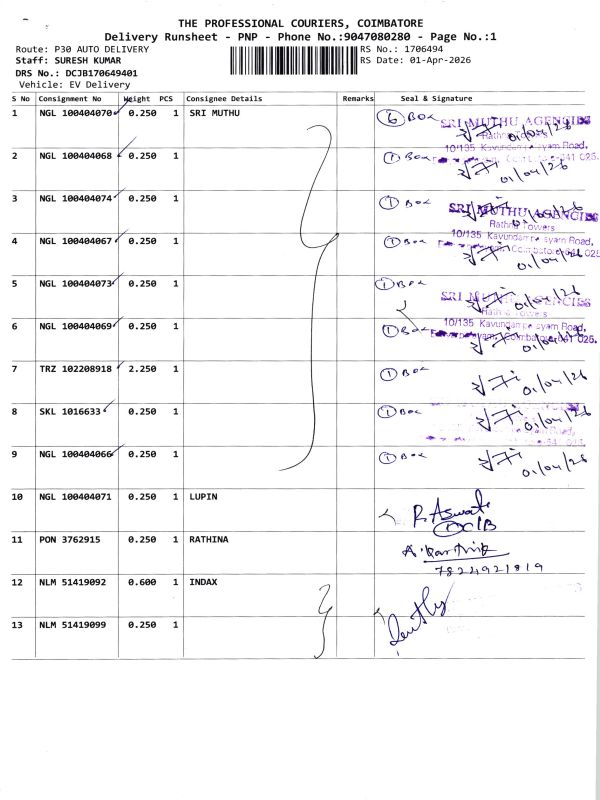 THE PROFESSIONAL COURIERS, COIMBATORE
Delivery Runsheet - PNP - Phone No.:9047080280 - Page No.:1
Route: P30 AUTO DELIVERY
RS No.: 1706494
Staff: SURESH KUMAR
RS Date: 01-Apr-2026
DRS No.: DCJB170649401
Vehicle: EV Delivery
S No Consignment No Weight PCS Consignee Details Remarks Seal & Signature
1 NGL 100404070 0.250 1 SRI MUTHU 6 Box 01/04/26
SRI MUTHU AGENCIES
Rathna Towers
10/135 Kavundampalayam Road,
2 NGL 100404068 0.250 1 1 Box 01/04/26
Coimbatore-641 025.
3 NGL 100404074 0.250 1 1 Box 01/04/26
SRI MUTHU AGENCIES
Rathna Towers
10/135 Kavundampalayam Road,
4 NGL 100404067 0.250 1 1 Box 01/04/26
Coimbatore-641 025.
5 NGL 100404073 0.250 1 1 Box 01/04/26
SRI MUTHU AGENCIES
Rathna Towers
10/135 Kavundampalayam Road,
6 NGL 100404069 0.250 1 1 Box 01/04/26
Coimbatore-641 025.
7 TRZ 102208918 2.250 1 1 Box 01/04/26
8 SKL 1016633 0.250 1 1 Box 01/04/26
9 NGL 100404066 0.250 1 1 Box 01/04/26
10 NGL 100404071 0.250 1 LUPIN R. Aswath
11 PON 3762915 0.250 1 RATHINA A. Karthik
7824921819
12 NLM 51419092 0.600 1 INDAX
13 NLM 51419099 0.250 1